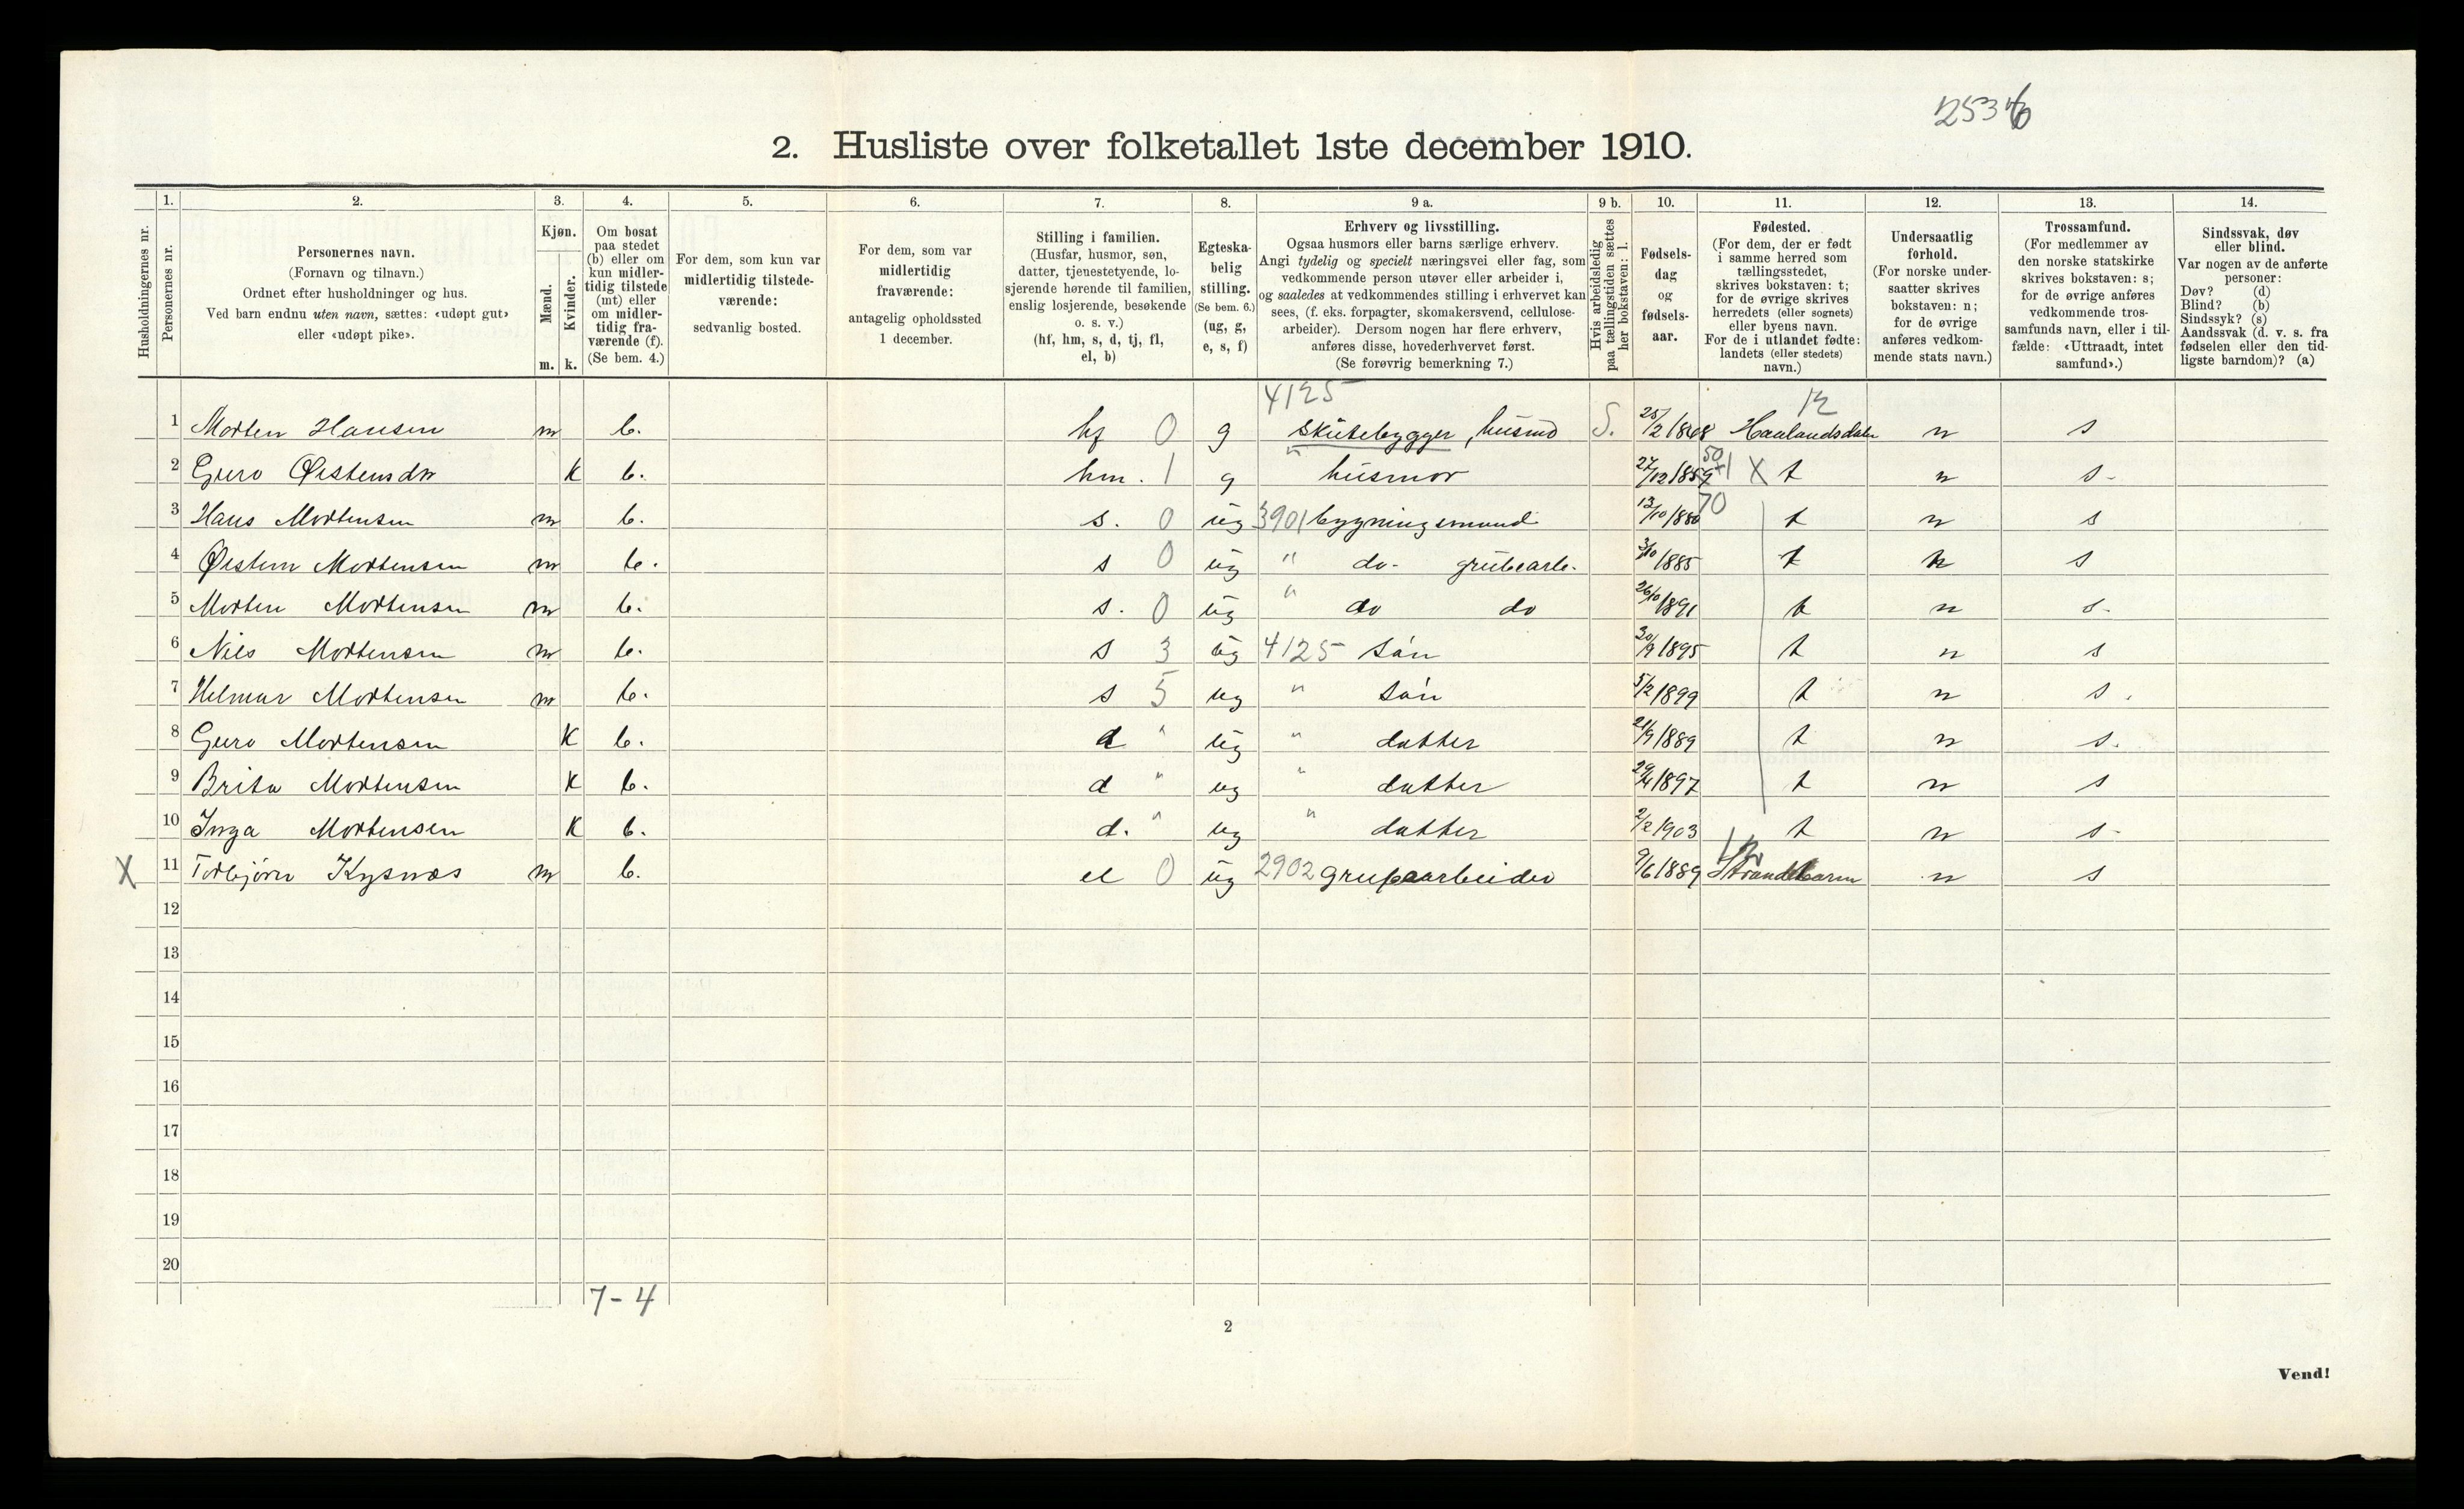 25346
2. Husliste over folketallet 1ste december 1910.
Husholdningernes nr.
1. Personernes nr.
2. Personernes navn. (Fornavn og tilnavn.) Ordnet efter husholdninger og hus. Ved barn endnu uten navn, sættes: «udøpt gut» eller «udøpt pike».
3. Kjøn. Mænd. m. Kvinder. k.
4. Om bosat paa stedet (b) eller om kun midlertidig tilstede (mt) eller om midlertidig fraværende (f). (Se bem. 4.)
5. For dem, som kun var midlertidig tilstedeværende: sedvanlig bosted.
6. For dem, som var midlertidig fraværende: antagelig opholdssted 1 december.
7. Stilling i familien. (Husfar, husmor, søn, datter, tjenestetyende, losjerende hørende til familien, enslig losjerende, besøkende o. s. v.) (hf, hm, s, d, tj, fl, el, b)
8. Egteskabelig stilling. (Se bem. 6.) (ug, g, e, s, f)
9 a. Erhverv og livsstilling. Ogsaa husmors eller barns særlige erhverv. Angi tydelig og specielt næringsvei eller fag, som vedkommende person utøver eller arbeider i, og saaledes at vedkommendes stilling i erhvervet kan sees, (f. eks. forpagter, skomakersvend, cellulosearbeider). Dersom nogen har flere erhverv, anføres disse, hovederhvervet først. (Se forøvrig bemerkning 7.)
9 b. Hvis arbeidsledig paa tællingstiden sættes her bokstaven: l.
10. Fødselsdag og fødselsaar.
11. Fødested. (For dem, der er født i samme herred som tællingsstedet, skrives bokstaven: t; for de øvrige skrives herredets (eller sognets) eller byens navn. For de i utlandet fødte: landets (eller stedets) navn.)
12. Undersaatlig forhold. (For norske undersaatter skrives bokstaven: n; for de øvrige anføres vedkommende stats navn.)
13. Trossamfund. (For medlemmer av den norske statskirke skrives bokstaven: s; for de øvrige anføres vedkommende trossamfunds navn, eller i tilfælde: «Uttraadt, intet samfund».)
14. Sindssvak, døv eller blind. Var nogen av de anførte personer: Døv? (d) Blind? (b) Sindssyk? (s) Aandssvak (d. v. s. fra fødselen eller den tidligste barndom)? (a)
4125 12
1 Morten Hansen m b. hf 0 g Skutebygger, husmd S. 25/2 1868 Haalandsdalen n s
2 Guro Østensdtr k b. hm. 1 g husmor 27/12 1859 X t n s -
3 Hans Mortensen m b. s. 0 ug 3901 bygningsmand 12/10 1880 70 t n s
4 Østein Mortensen m b. s 0 ug " do- grubearb. 3/10 1885 t n s
5 Morten Mortensen m b. s. 0 ug " do do 26/10 1891 t n s.
6 Nils Mortensen m b. s 3 ug 4125 søn 30/9 1895 t n s
7 Helmar Mortensen m b. s 5 ug " søn 5/2 1899 t n s.
8 Guro Mortensen K b. d " ug " datter 21/9 1889 t n s.
9 Brita Mortensen K b. d " ug " datter 29/4 1897 t n s
10 Inga Mortensen K b. d. " ug " datter 2/2 1903 t n s -
X 11 Torbjørn Kysnæs m b. el 0 ug 2902 grubearbeider 9/6 1889 Strandebarm n s
12
13
14
15
16
17
18
19
20
7-4
2
Vend!